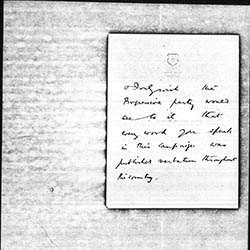 I only wish the
Progressive party would
see to it that
every word you speak
in this campaign was
published verbatim throughout
the country.